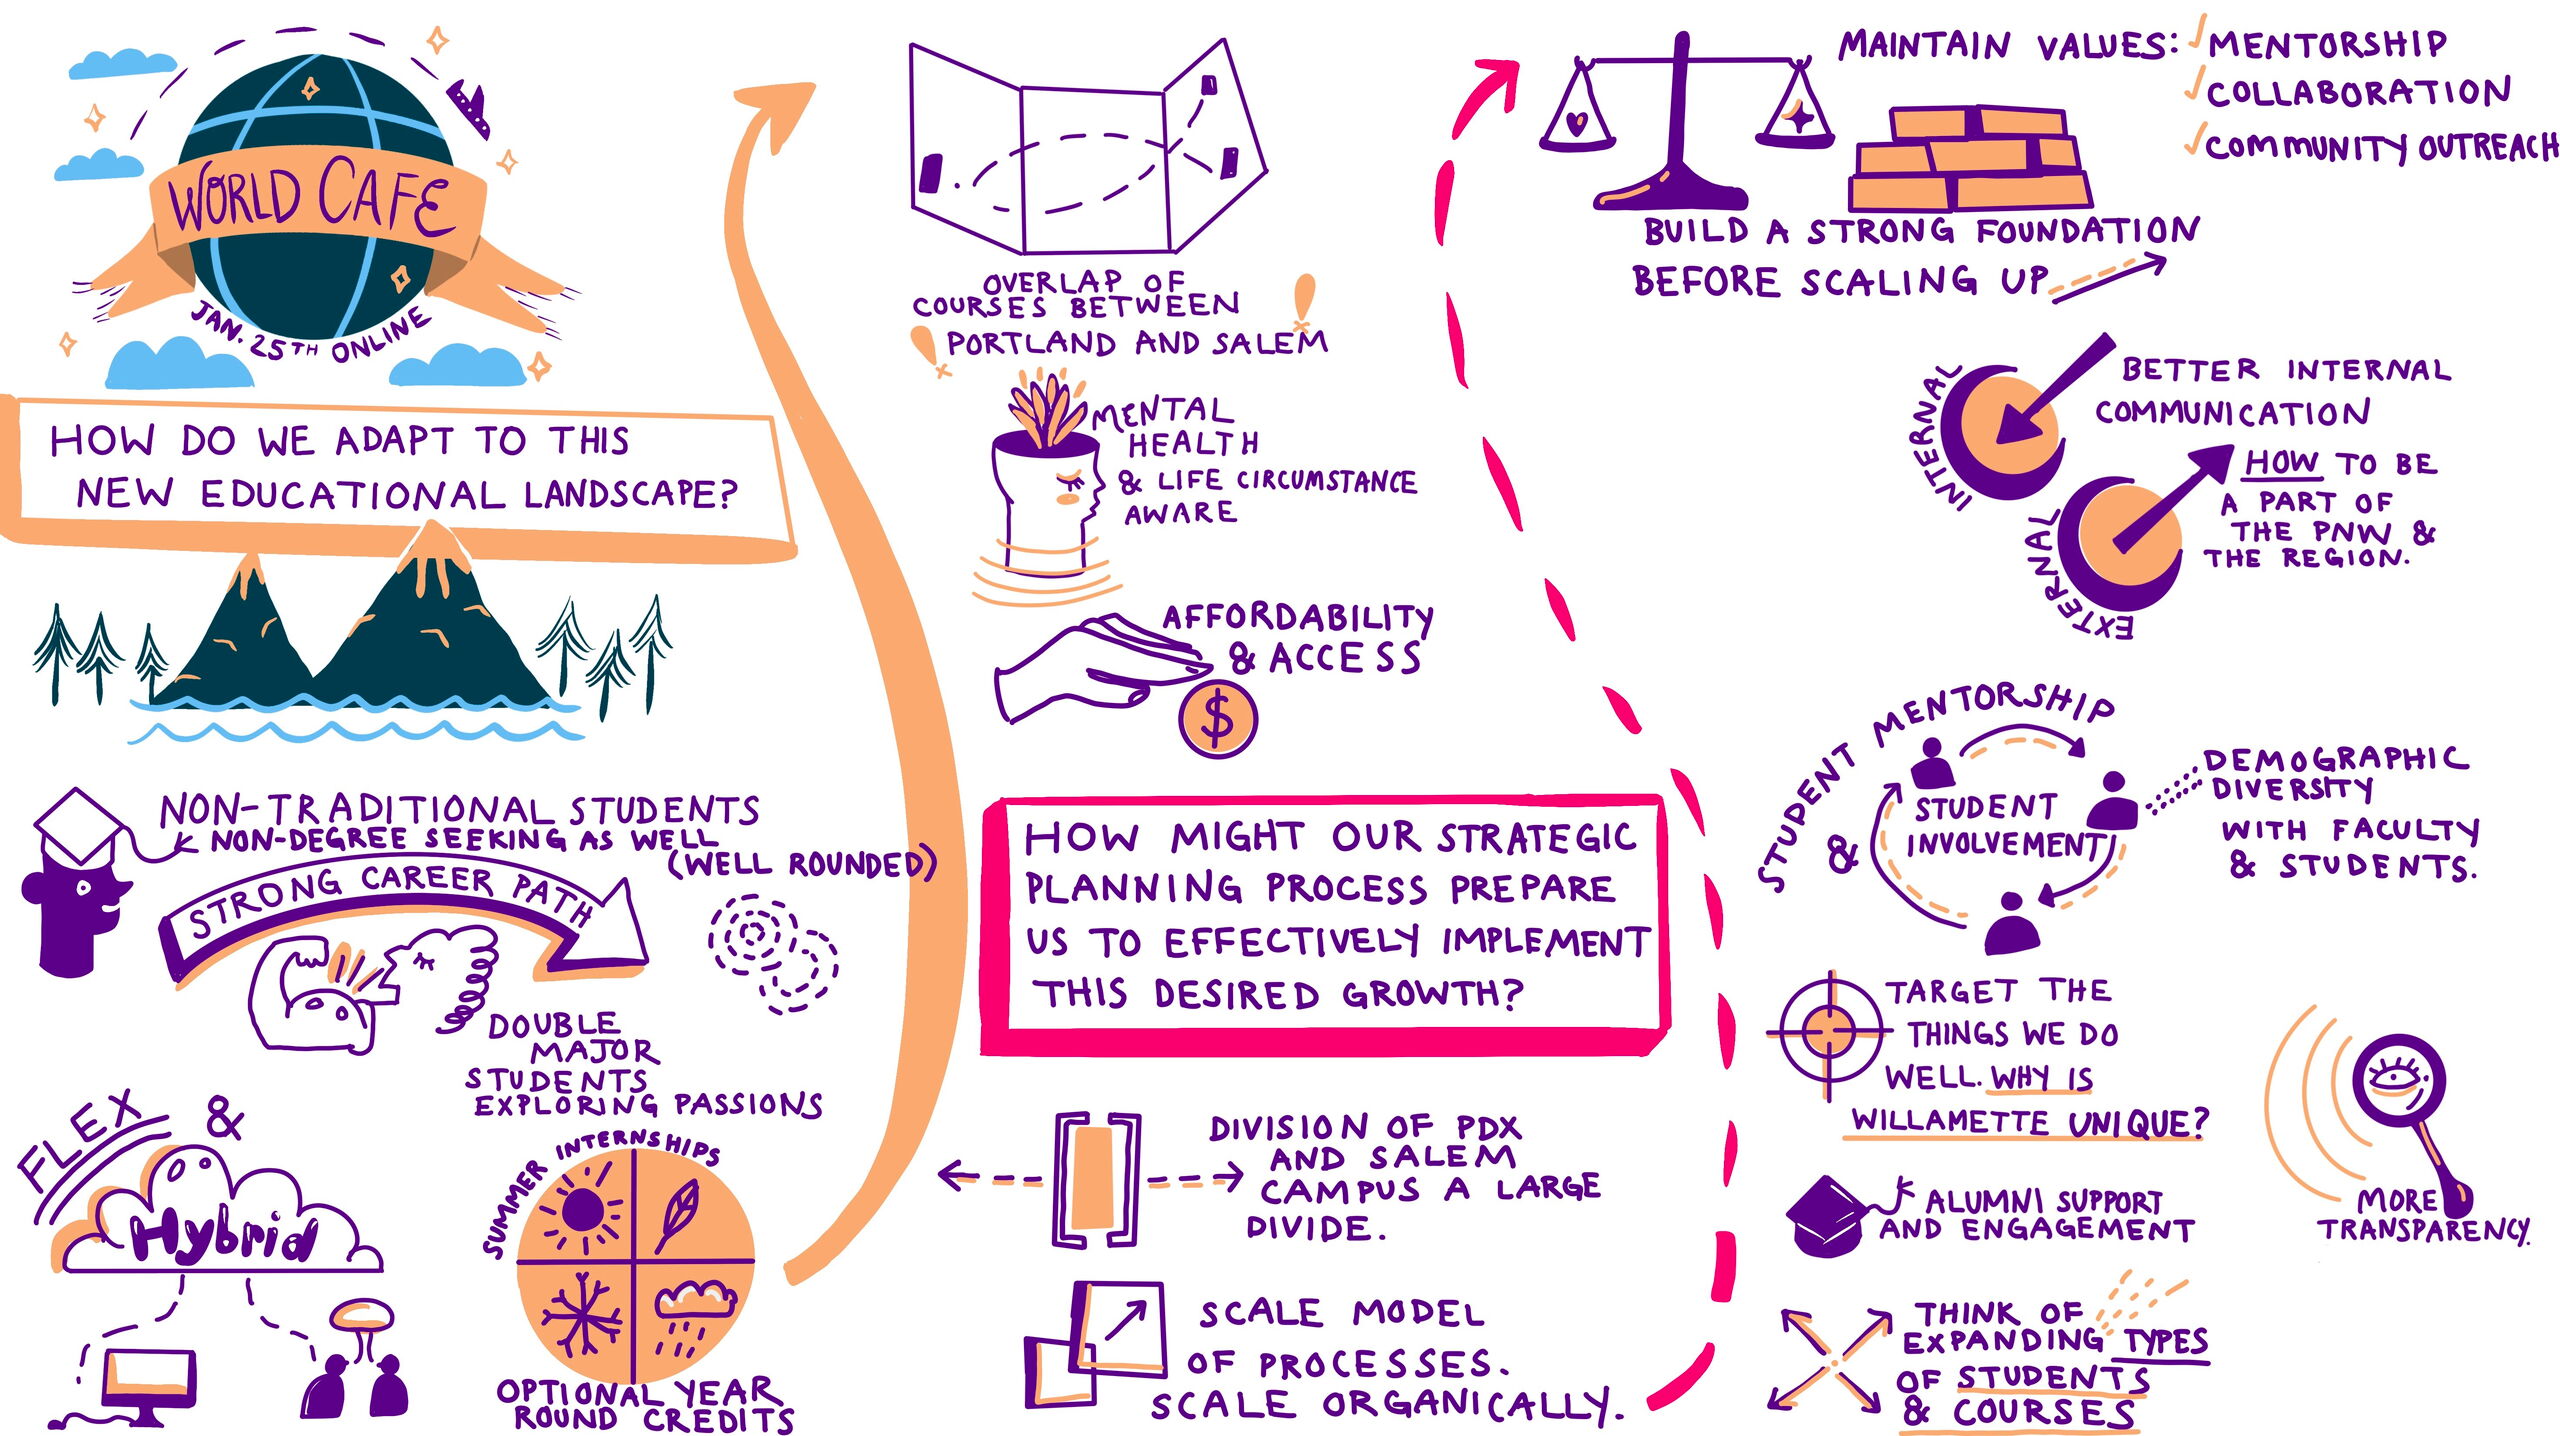 WORLD CAFE
JAN. 25TH ONLINE
HOW DO WE ADAPT TO THIS
NEW EDUCATIONAL LANDSCAPE?
NON-TRADITIONAL STUDENTS
NON-DEGREE SEEKING AS WELL
(WELL ROUNDED)
STRONG CAREER PATH
DOUBLE
MAJOR
STUDENTS
EXPLORING PASSIONS
FLEX &
Hybrid
SUMMER INTERNSHIPS
OPTIONAL YEAR
ROUND CREDITS
OVERLAP OF
COURSES BETWEEN
PORTLAND AND SALEM
MENTAL
HEALTH
& LIFE CIRCUMSTANCE
AWARE
AFFORDABILITY
& ACCESS
$
HOW MIGHT OUR STRATEGIC
PLANNING PROCESS PREPARE
US TO EFFECTIVELY IMPLEMENT
THIS DESIRED GROWTH?
DIVISION OF PDX
AND SALEM
CAMPUS A LARGE
DIVIDE.
SCALE MODEL
OF PROCESSES.
SCALE ORGANICALLY.
MAINTAIN VALUES: ✓ MENTORSHIP
✓ COLLABORATION
✓ COMMUNITY OUTREACH
BUILD A STRONG FOUNDATION
BEFORE SCALING UP
INTERNAL
BETTER INTERNAL
COMMUNICATION
EXTERNAL
HOW TO BE
A PART OF
THE PNW &
THE REGION.
STUDENT MENTORSHIP
&
STUDENT
INVOLVEMENT
DEMOGRAPHIC
DIVERSITY
WITH FACULTY
& STUDENTS.
TARGET THE
THINGS WE DO
WELL. WHY IS
WILLAMETTE UNIQUE?
MORE
TRANSPARENCY.
ALUMNI SUPPORT
AND ENGAGEMENT
THINK OF
EXPANDING TYPES
OF STUDENTS
& COURSES